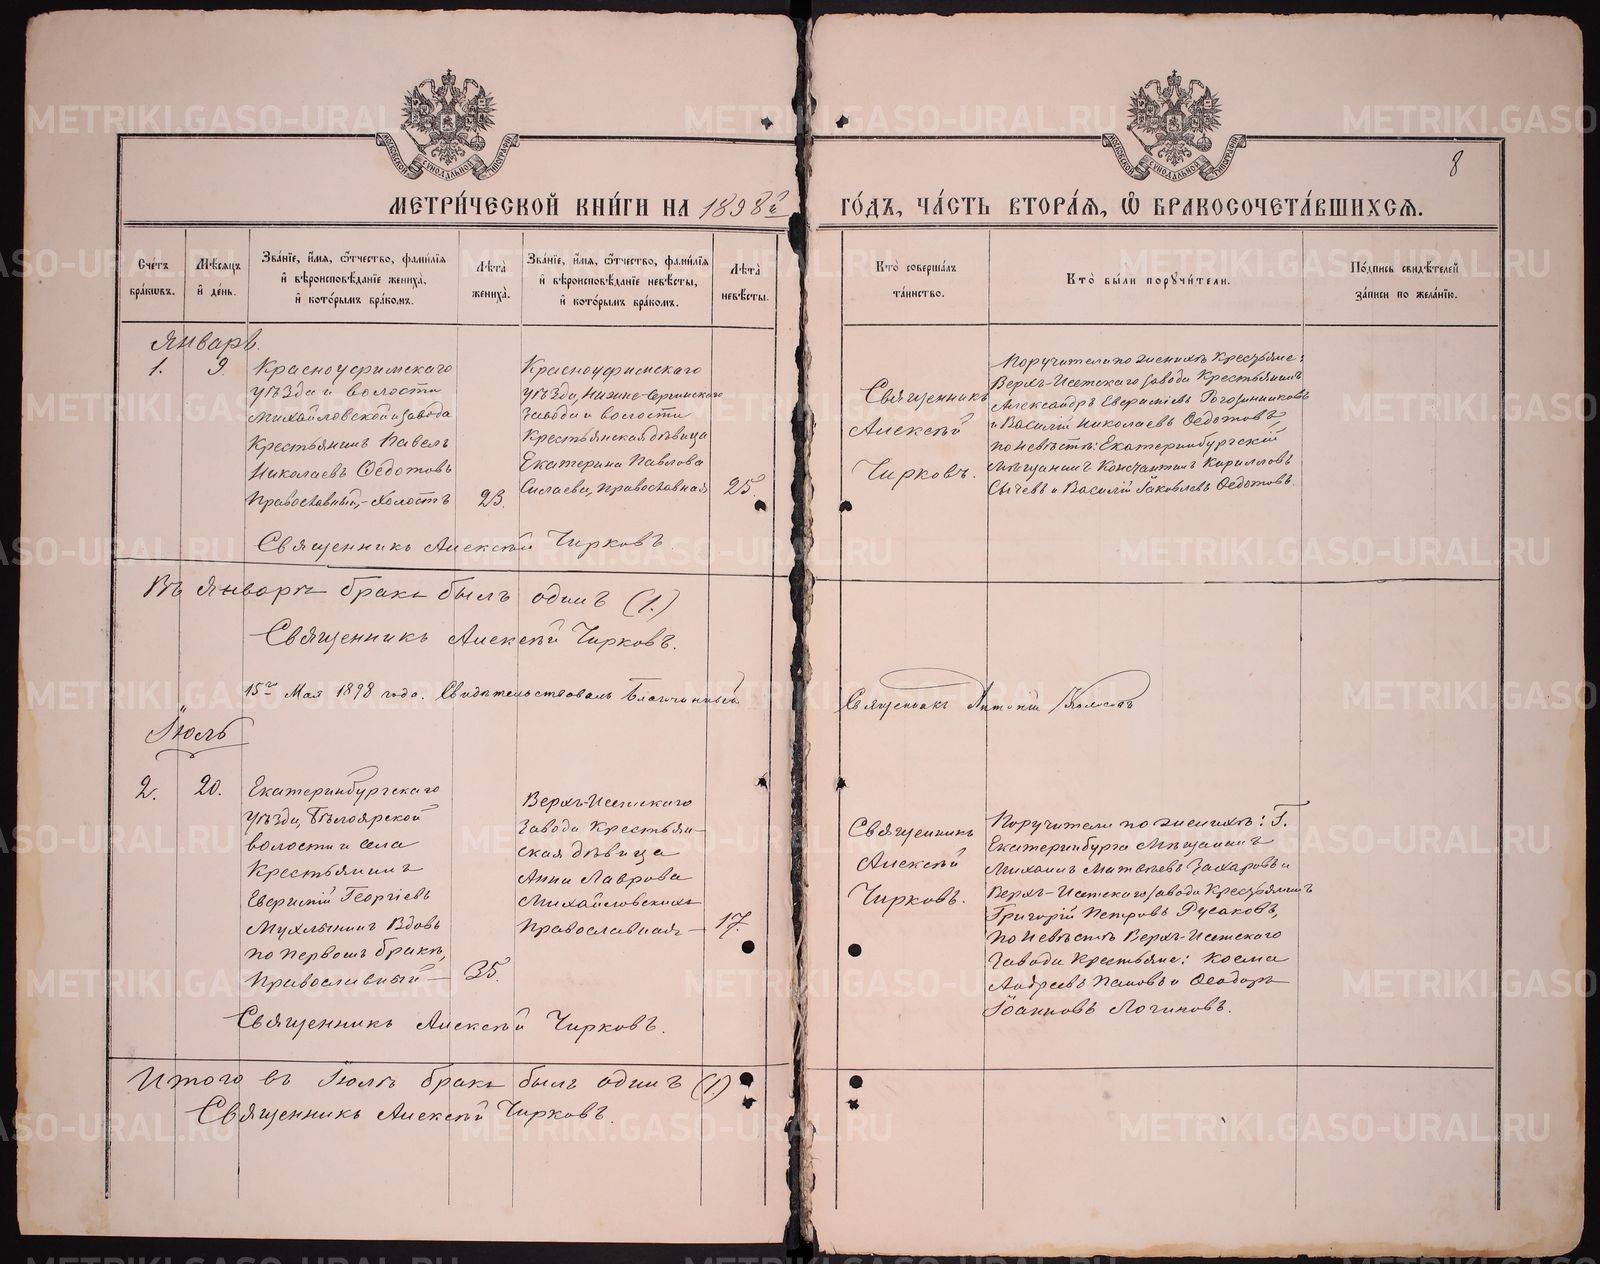 МЕТРИ́ЧЕСКОЙ КНИ́ГИ НА 1898й
ГО́ДЪ, ЧА́СТЬ ВТОРА́Я, Ѿ БРАКОСОЧЕТА́ВШИХСЯ.
8
Сче́тъ бра́кѡвъ.
Мѣ́сяцъ и҆ де́нь.
Зва́нїе, и҆́мя, ѻ҆́тчество, фами́лїя и҆ вѣроисповѣ́данїе жениха̀, и҆ кото́рымъ бра́комъ.
Лѣта̀ жениха̀.
Зва́нїе, и҆́мя, ѻ҆́тчество, фами́лїя и҆ вѣроисповѣ́данїе невѣ́сты, и҆ кото́рымъ бра́комъ.
Лѣта̀ невѣ́сты.
Кто̀ соверша́лъ та́инство.
Кто̀ бы́ли порꙋчи́тели.
По́дпись свидѣ́телей за́писи по жела́нїю.
Январь.
1.
9.
Красноуфимскаго
уѣзда и волости
Михайловской завода
Крестьянинъ Павелъ
Николаевъ Ѳедотовъ
Православный,-холостъ
23.
Красноуфимскаго
уѣзда, Нижне-Сергинскаго
завода и волости
Крестьянская дѣвица
Екатерина Павлова
Силаева, православная
25.
Священникъ
Алексѣй
Чирковъ.
Поручители по женихѣ Крестьяне:
Верхъ-Исетскаго завода Крестьянинъ
Александръ Еверстіевъ Гогозинниковъ
и Василій Николаевъ Ѳедотовъ
по невѣстѣ: Екатеринбургскій
мѣщанинъ Константинъ Кирилловъ
Сычевъ и Василій Іаковлевъ Ѳедотовъ.
Священникъ Алексѣй Чирковъ.
Въ Январѣ бракъ былъ одинъ (1.)
Священникъ Алексѣй Чирковъ.
15го Мая 1898 года. Свидѣтельствовалъ Благочинный
Священникъ Антоній
Іюль
2.
20.
Екатеринбургскаго
уѣзда, Бѣлоярской
волости и села
Крестьянинъ
Еверстій Георгіевъ
Мухлынинъ Вдовъ
по первомъ бракѣ,
Православный —
35.
Верхъ-Исетскаго
завода Крестьян-
ская дѣвица
Анна Лаврова
Михайловскихъ
Православная —
17.
Священникъ
Алексѣй
Чирковъ.
Поручители по женихѣ: Г.
Екатеринбурга Мѣщанинъ
Михаилъ Матвѣевъ Захаровъ и
Верхъ-Исетскаго завода Крестьянинъ
Григорій Петровъ Русаковъ,
по Невѣстѣ Верхъ-Исетскаго
Завода Крестьяне: Косма
Андреевъ Пановъ и Ѳеодоръ
Іоанновъ Логиновъ.
Священникъ Алексѣй Чирковъ.
Итого въ Іюлѣ бракъ былъ одинъ (1.)
Священникъ Алексѣй Чирковъ.
METRIKI.GASO-URAL.RU